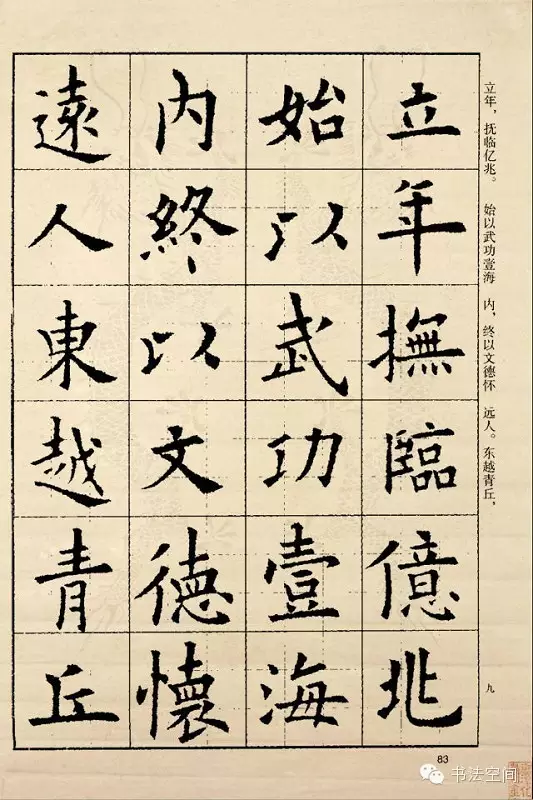 立年撫臨億兆
始以武功壹海
内終以文德懷
遠人東越青丘
立年，抚临亿兆。 始以武功壹海 内，终以文德怀 远人。东越青丘，
九
83
书法空间